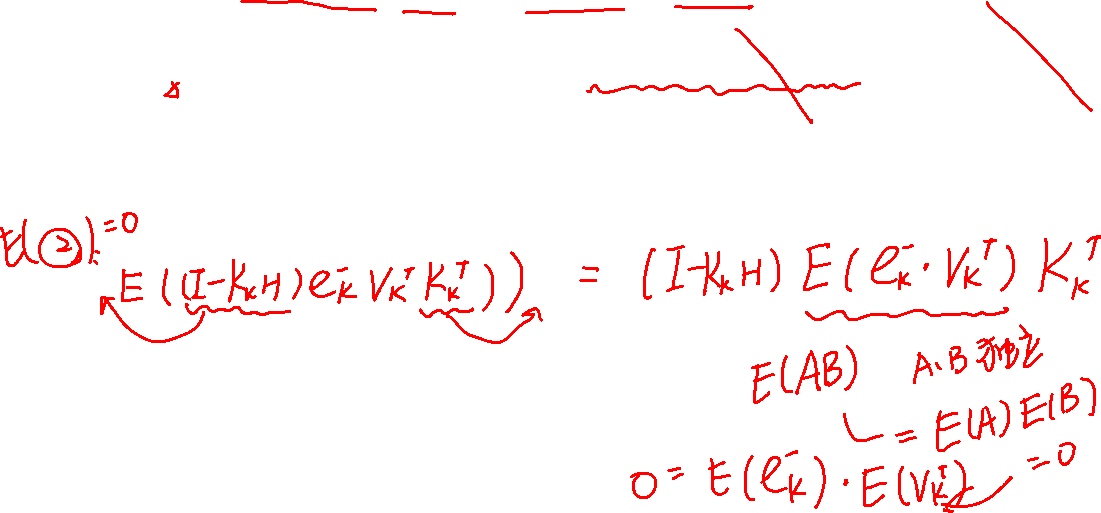 E(②) = 0
E((I-K_k H) e_k^- V_k^T K_k^T)) = (I-K_k H) E(e_k^- · V_k^T) K_k^T
E(AB) A、B 独立
= E(A) E(B)
0 = E(e_k^-) · E(V_k^T) = 0